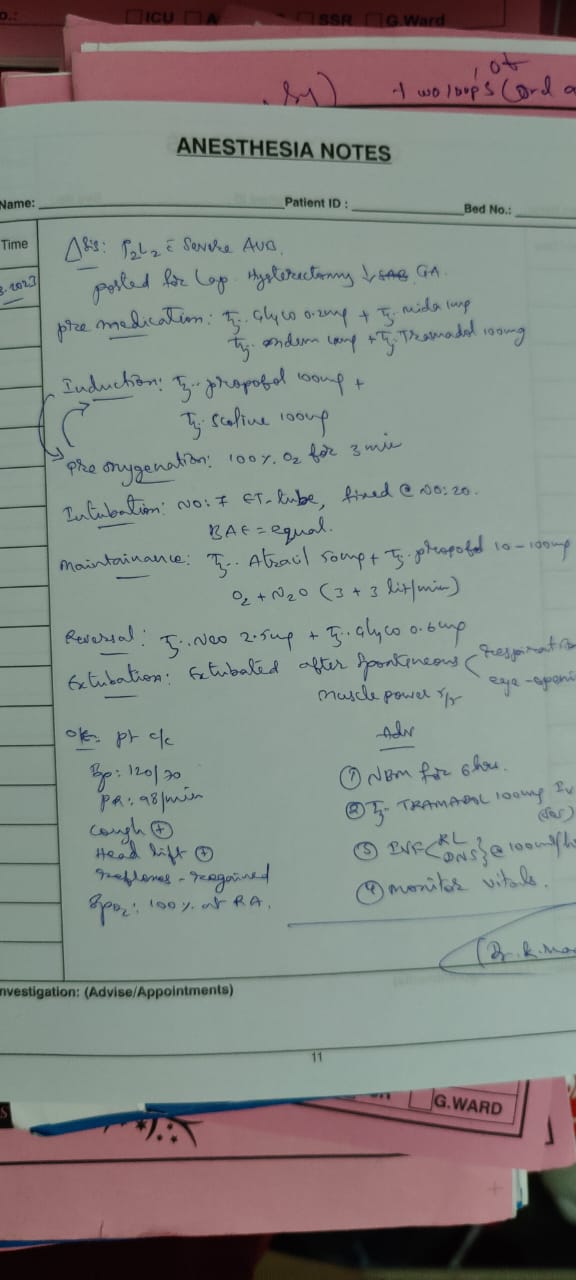 ICU
SSR G.Ward
of
two loops (
ANESTHESIA NOTES
Name: Patient ID : Bed No.:
Time
.2023
Δsis: P2L2 c̄ Severe AUB.
posted for Lap. Hysterectomy ↓ SAB GA.
pre medication: Inj. Glyco 0.2mg + Inj. mida 1mg
Inj. ondem 4mg + Inj. Tramadol 100mg
Induction: Inj. propofol 100mg +
Inj. Scoline 100mg
pre oxygenation: 100% O2 for 3 min
Intubation: NO: 7 ET-tube, fixed @ NO: 20.
BAE = equal.
Maintainance: Inj. Atracil 50mg + Inj. propofol 10-100mg
O2 + N2O (3 + 3 lit/min)
Reversal: Inj. Neo 2.5mg + Inj. Glyco 0.6mg
Extubation: Extubated after Spontineous Respirati
eye-openi
muscle power 5/5
O/E: pt c/c
Bp: 120/70
PR: 98/min
Cough ⊕
Head lift ⊕
Reflexes - Regained
SpO2: 100% at RA.
Adv
① NBM for 6 hrs.
② Inj. TRAMADOL 100mg IV
③ IVF RL DNS @ 100ml/h
④ monitor vitals.
(Dr. K.
nvestigation: (Advise/Appointments)
11
G.WARD